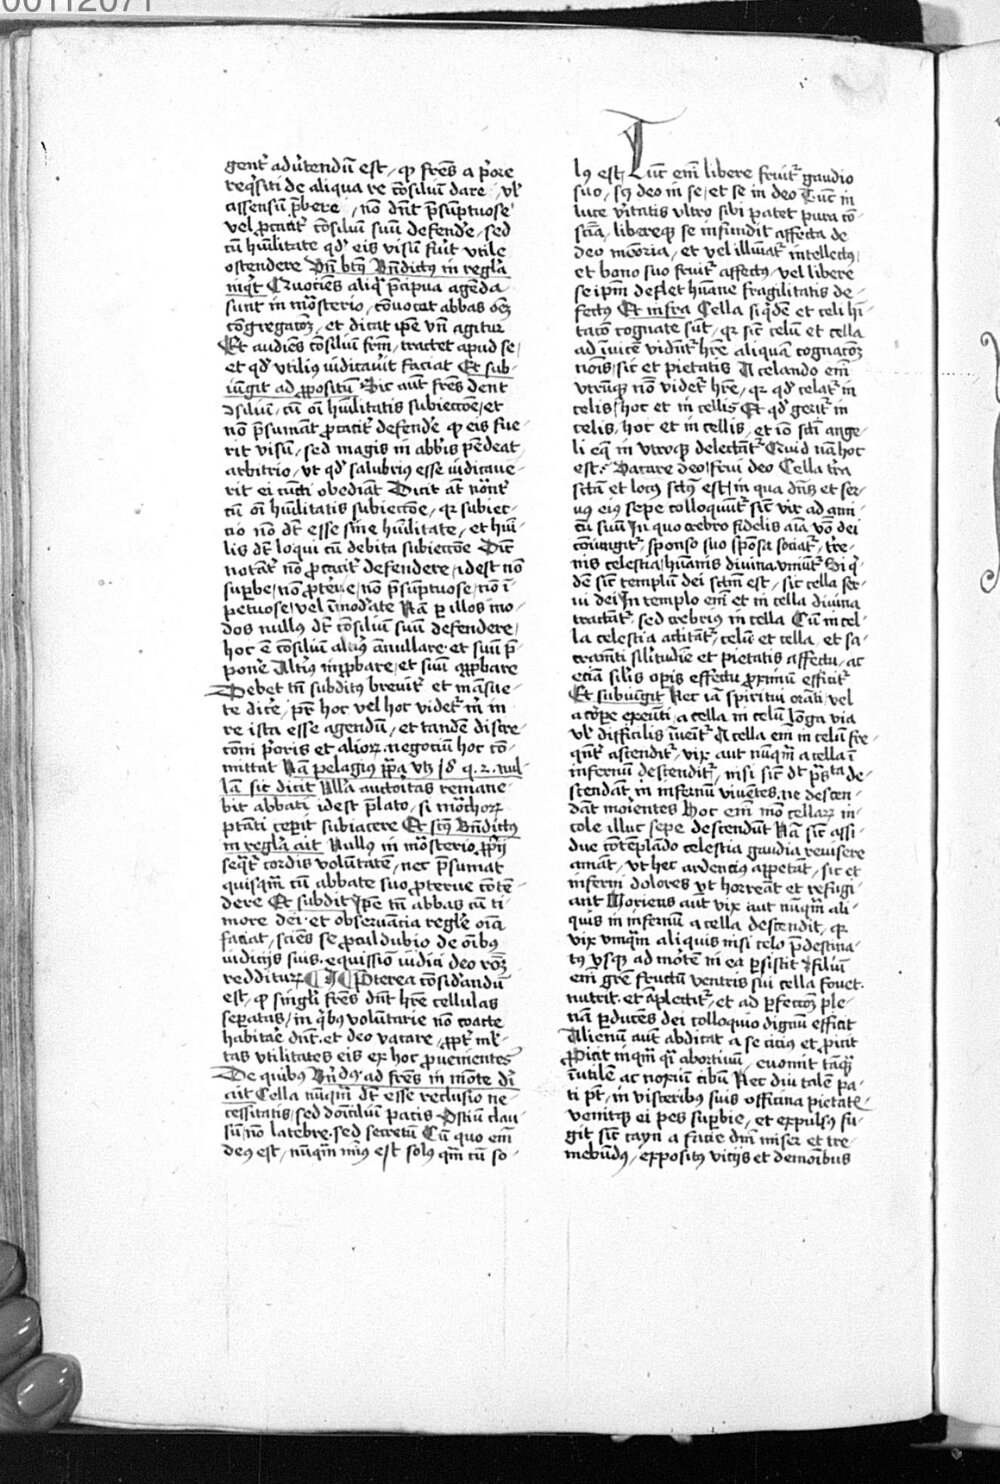 00112071
gent̃ adu̾tendũ est / qͥ fr̃es a p̾ore
reqͥsiti de aliqua re cõsiliũ dare / vl̾
assensũ p̾bere / nõ dn̄t p̄sũptuose
vel p̱tacit̾ cõsiliũ suũ defende̾ / sed
cũ hũilitate qd̾ eis visũ fu̾it vtile
ostendere Vñ bt̃us Bñdictus in regl̾a
inqͥt Quocies aliq̃ p̄cipua agẽda
sunt in mõsterio / cõuocat abbas oẽʒ
cõgregatoʒ / et dicat ip̃e vñ agitur
Et audiẽs cõsiliũ fr̃m / tractet apud se /
et qd̾ vtilius iudicau̾it faciat Et sub-
iũgit ad ꝓpositũ Sic aut̃ fr̃es dent
ↄsiliũ / cũ oĩ hũilitatis subiectõe / et
nõ p̄sumãt p̱tacit̾ defende̾ qͥ eis fue-
rit visũ / sed magis in abb̃is pẽdeat
arbitrio / vt qd̾ salubrius esse iudicaue-
rit ei cũcti obediãt Dicit at̃ nõt̃
cũ oĩ hũilitatis subiectõe / qꝛ subiec-
tio nõ dt̃ esse sine hũilitate / et hũi-
lis dt̃ loqui cũ debita subiectõe Dict̃
notãt̃ nõ p̱tacit̾ defendere / idest nõ
sup̱be / nõ p̱terue / nõ p̄sũptuose / nõ ĩ-
petuose / vel ĩmod̾ate Nã p̱ illos mo-
dos nullus dt̃ cõsiliũ suũ defendere /
hoc ẽ cõsiliũ alt̾ius ãnullare et suũ p̃-
pone̾ Alt̾ius inp̱bare / et suũ app̱bare
Debet tñ subditus breuit̾ et mãsue-
te dice̾ / pr̃ hoc vel hoc videt̃ m̃ in
re ista esse agendũ / et tandẽ discre-
coni p̾oris et alioꝝ negociũ hoc cõ-
mittat Nã pelagius p̃p̃a vt̃ J̃d q̃. 2. nul-
lam sic dicit Nl̃la auctoritas remane-
bit abbati idest p̄lato / si mõchoꝝ
ptãti cep̾it subiacere Et sc̃us Bñdictus
in regl̾a ait Nullus in mõsterio p̱p̱ij
seqͥt̃ cordis volũtatẽ / nec p̄sumat
quisqm̃ cũ abbate suo p̱terue cõtẽ-
dere Et subdit Ip̃e tñ abbas cũ ti-
more dei et obseruãcia regle̾ oĩa
faciat / sciẽs se p̱culdubio de oĩbus
iudicijs suis equissĩo iudici deo rõʒ
redditurꝝ ¶ Pret̾ea cõsid̾andũ
est / qͥ singl̾i fr̃es dn̄t hr̃e cellulas
sep̱atas / in qͥbus volũtarie nõ coacte
habitare̾ dn̄t et deo vacare / ꝓpt̾ ml̾-
tas vtilitates eis ex hoc ꝓuenientes
De quibus Bñdus ad fr̃es in mõte dĩ
ait Cella nũsqm̃ dt̃ esse reclusio ne-
cessitatis / sed domiciliũ pacis Ostiũ clau-
sũ / nõ latebre / sed secretũ Cũ quo em̃
deus est / nũqm̃ mĩus est solus qm̃ cũ so-
lus est / Tũc em̃ libere fruit̃ gaudio
suo / sꝫ deo in se / et se in deo Tũc in
luce vi̾tatis vltro sibi patet pura cõ-
scĩa / libereqꝫ se infundit affecta de
deo mẽoria / et vel illuĩat̃ intellectus /
et bono suo fruit̃ affectus / vel libere
seip̃m deflet hũane fragilitatis de-
fectus Et infra Cella siqͥdẽ et celi hi-
tacõ cognate sũt / qꝛ sic̃ celũ et cella
ad ĩuicẽ vidẽt̃ hr̃e aliquã cognacõʒ
nõis / sic et pietatis A celando em̃
vtrũqꝫ nõ videt̃ hr̃e / qꝛ qd̾ celat̃ in
celis / hoc et in cellis Et qd̾ gerit̃ in
celis / hoc et in cellis / et iõ sc̃i ange-
li eqͣ in vtroqꝫ delectãt̃ Quid nã hoc
est? Vacare deo / frui deo Cella t̾ra
sc̃ta et locus sc̃tus est / in qua dñs et ser-
uus eius sepe colloquũt̃ sic̃ vir ad ami-
cũ suũ In quo crebro fidelis aĩa vo̾ dei
cõiungit̃ / sponso suo spõsa sociat̃ / t̾re-
nis celestia / hũanis diuina vniũt̃ Siqͥ-
dẽ sic̃ templũ dei sc̃tm̃ est / sic cella ser-
ui dei In templo em̃ et in cella diuina
tractãt̃ / sed crebrius in cella Cũ in cel-
la celestia actitãt̃ / celũ et cella / et sa-
cramẽti sil̾itudine et pietatis affectu / ac
eciã sil̾is op̱is effectu ꝓximũ efficit̃
Et subiungit Nec iã spiritui orãti / vel
a cõp̱e exeũti / a cella in celũ lõga via
vl̾ difficilis ĩueit̃ A cella em̃ in celũ fre-
qñt̾ ascendit̃ / vix aut nũqm̃ a cella ĩ
infernũ descendit̃ / nisi sic̃ dt̃ p̃sta de-
scendãt in infernũ viuẽtes / ne descen-
dãt moientes Hoc em̃ mõ cellaꝝ in-
cole illuc sepe descendũt Nã sic̃ assi-
due cõtẽplãdo celestia gaudia reuisere
amãt / vt hec ardencius appetãt / sic et
inferni dolores vt horreãt et refugi-
ant Moriens aut vix aut nũqm̃ ali-
quis in infernũ a cella descendit / qꝛ
vix vmqm̃ aliquis nisi celo p̄destina-
tus vsqꝫ ad mõte̾ in ea p̱sistit Filiũ
em̃ gr̃e fructũ ventris sui cella fouet
nutrit et ãplectit̃ / et ad p̱fectõʒ ple-
nã p̱ducẽs dei colloquio dignũ efficit
Alienũ aut abdicat a se citius et p̾icit
Proicit inqm̃ qͣ abortiuũ / euomit tãqͣ
ĩutilẽ ac noxiũ cibũ Nec diu talẽ pa-
ti pt̃ / in visceribus suis officina pietatis
venitqꝫ ei pes sup̱bie / et expulsus fu-
git sic̃ cayn a facie dñi miser et tre-
mebũdus / expositus vicijs et demoĩbus